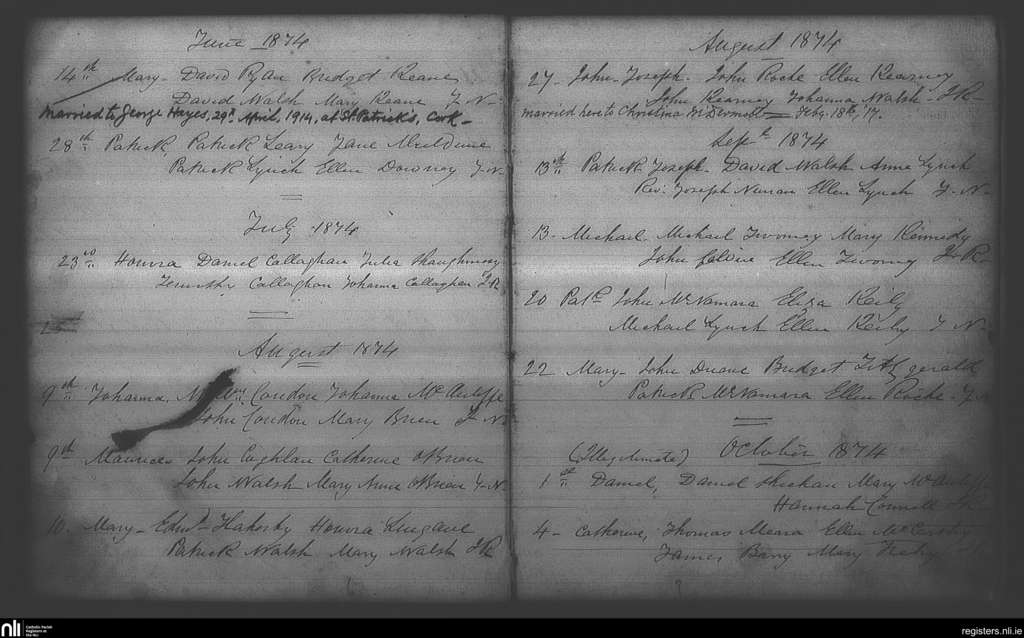 June 1874
14th Mary - David Ryan Bridget Keane
David Walsh Mary Keane J. N.
Married to George Hayes, 29th April, 1914, at St Patrick's, Cork -
28th Patrick, Patrick Leary Jane Muldune
Patrick Lynch Ellen Downey J. N.
July 1874
23rd Honora Daniel Callaghan Julia Shaughnessy
Timothy Callaghan Johanna Callaghan J. R.
August 1874
9th Johanna, Condon Johanna McAuliffe
John Condon Mary Brien J. N.
9th Maurice John Coghlan Catherine O'Brien
John Walsh Mary Anne O'Brien J. N.
10. Mary - Edwd Flaherty Honora Lingane
Patrick Walsh Mary Walsh J. R.
August 1874
27. John Joseph. John Roche Ellen Kearney
John Kearney Johanna Walsh - J. R.
married here to Christina McDermott = Feby. 18th, '17.
Sept 1874
13th Patrick Joseph. David Walsh Anne Lynch
Rev. Joseph Ellen Lynch J. N.
13 - Michael. Michael Twomey Mary Kennedy
John Ellen Twomey J. R.
20 Patk John McNamara Eliza Reily
Michael Lynch Ellen J. N.
22 Mary - John Duane Bridget Fitzgerald
Patrick McNamara Ellen Roche - J. N.
October 1874
(Illegitimate)
1st Daniel, Daniel Sheehan Mary McAuliffe
Hannah Connell
4 - Catherine, Thomas Meara Ellen McCarthy
James Barry Mary
nli
Catholic Parish
Registers at
the NLI
registers.nli.ie